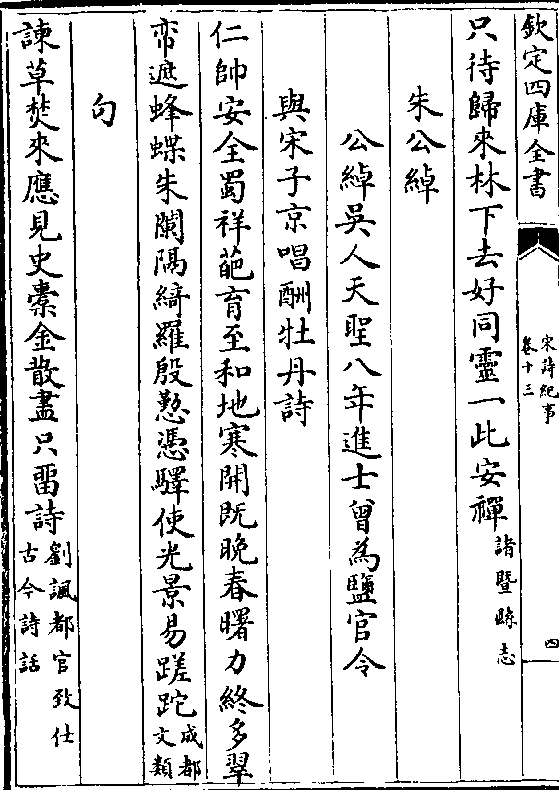 欽定四庫全書
宋詩紀事
卷十三
四
只待歸來林下去好同靈一此安禪
諸暨縣志
朱公綽
公綽吳人天聖八年進士曾為鹽官令
與宋子京唱酬牡丹詩
仁帥安全蜀祥葩育至和地寒開既晚春曙力終多翠
帟遮蜂蝶朱闌隔綺羅殷懃憑驛使光景易蹉跎
成都
文類
句
諫草焚來應見史橐金散盡只畱詩
劉諷都官致仕
古今詩話